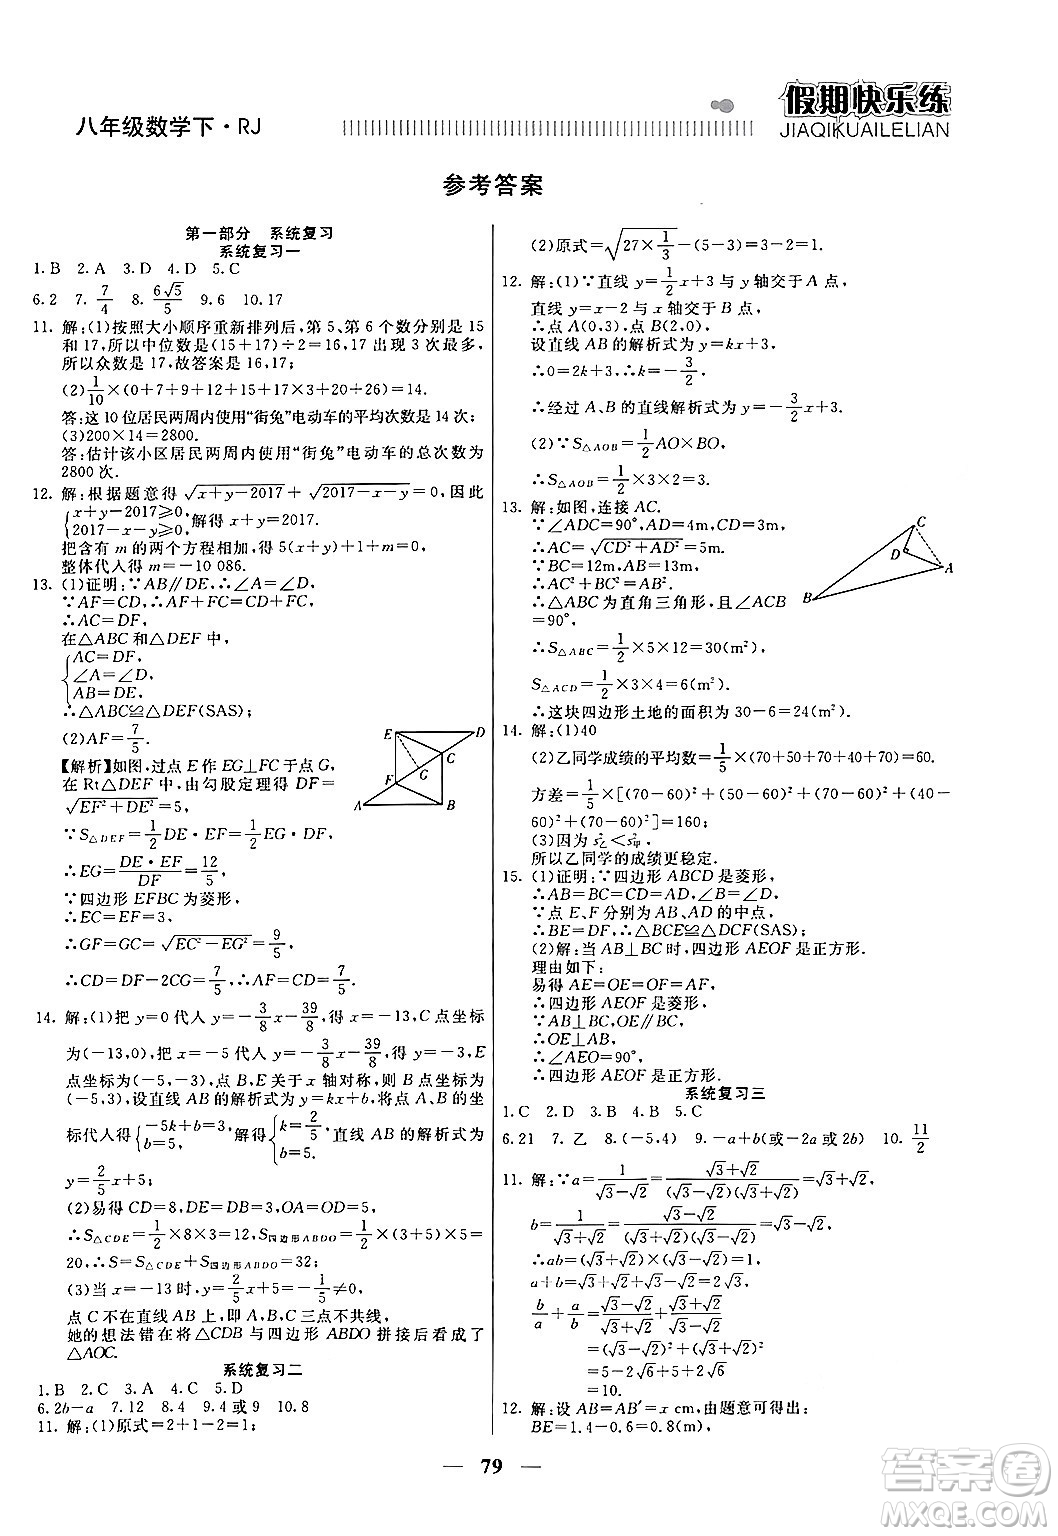 八年级数学下·RJ
假期快乐练
JIAQIKUAILELIAN
参考答案
第一部分 系统复习
系统复习一
1.B 2.A 3.D 4.D 5.C
6.2 7.7/4 8.6√5/5 9.6 10.17
11.解:(1)按照大小顺序重新排列后,第5、第6个数分别是15
和17,所以中位数是(15+17)÷2=16,17出现3次最多,
所以众数是17,故答案是16,17;
(2)1/10×(0+7+9+12+15+17×3+20+26)=14.
答:这10位居民两周内使用“街兔”电动车的平均次数是14次;
(3)200×14=2800.
答:估计该小区居民两周内使用“街兔”电动车的总次数为
2800次.
12.解:根据题意得√(x+y-2017)+√(2017-x-y)=0,因此
{x+y-2017⩾0,
2017-x-y⩾0,解得x+y=2017.
把含有m的两个方程相加,得5(x+y)+1=-m,
整体代人得m=-10 086.
13.(1)证明:∵AB∥DE,∴∠A=∠D,
∵AF=CD,∴AF+FC=CD+FC,
∴AC=DF,
在△ABC和△DEF中,
{AC=DF,
∠A=∠D,
AB=DE,
∴△ABC≌△DEF(SAS);
(2)AF=7/5.
【解析】如图,过点E作EG⊥FC于点G,
在Rt△DEF中,由勾股定理得DF=
√(EF²+DE²)=5,
∵S△DEF=1/2DE·EF=1/2EG·DF,
∴EG=DE·EF/DF=12/5,
∵四边形EFBC为菱形,
∴EC=EF=3,
∴GF=GC=√(EC²-EG²)=9/5,
∴CD=DF-2CG=7/5,∴AF=CD=7/5.
E D C G F A B
14.解:(1)把y=0代人y=-3/8x-39/8,得x=-13,C点坐标
为(-13,0),把x=-5代人y=-3/8x-39/8,得y=-3,E
点坐标为(-5,-3),点B,E关于x轴对称,得B点坐标为
(-5,3),设直线AB的解析式为y=kx+b,将点A、B的坐
标代人得{-5k+b=3,
b=5, 解得{k=2/5,
b=5, 直线AB的解析式为
y=2/5x+5;
(2)易得CD=8,DE=DB=3,OA=OD=5,
∴S△CDE=1/2×8×3=12,S四边形ABDO=1/2×(3+5)×5=
20,∴S=S△CDE+S四边形ABDO=32;
(3)当x=-13时,y=2/5x+5=-1/5≠0,
点C不在直线AB上,即A,B,C三点不共线,
她的想法错在将△CDB与四边形ABDO拼接后看成了
△AOC.
系统复习二
1.B 2.C 3.A 4.C 5.D
6.2b-a 7.12 8.4 9.4或9 10.8
11.解:(1)原式=2+1-2=1;
(2)原式=√(27×1/3)-(5-3)=3-2=1.
12.解:(1)∵直线y=1/2x+3与y轴交于A点,
直线y=x-2与x轴交于B点,
∴点A(0,3),点B(2,0),
设直线AB的解析式为y=kx+3,
∴0=2k+3,∴k=-3/2,
∴经过A、B的直线解析式为y=-3/2x+3,
(2)∵S△AOB=1/2AO×BO,
∴S△AOB=1/2×3×2=3.
13.解:如图,连接AC.
∵∠ADC=90°,AD=4m,CD=3m,
∴AC=√(CD²+AD²)=5m.
∵BC=12m,AB=13m,
∴AC²+BC²=AB²,
∴△ABC为直角三角形,且∠ACB
=90°,
∴S△ABC=1/2×5×12=30(m²),
S△ACD=1/2×3×4=6(m²),
∴这块四边形土地的面积为30-6=24(m²).
C D A B
14.解:(1)40
(2)乙同学成绩的平均数=1/5×(70+50+70+40+70)=60.
方差=1/5×[(70-60)²+(50-60)²+(70-60)²+(40-
60)²+(70-60)²]=160;
(3)因为s²乙<s²甲,
所以乙同学的成绩更稳定.
15.(1)证明:∵四边形ABCD是菱形,
∴AB=BC=CD=AD,∠B=∠D,
∵点E、F分别为AB、AD的中点,
∴BE=DF,∴△BCE≌△DCF(SAS);
(2)解:当AB⊥BC时,四边形AEOF是正方形.
理由如下:
易得AE=OE=OF=AF,
∴四边形AEOF是菱形,
∵AB⊥BC,OE∥BC,
∴OE⊥AB,
∴∠AEO=90°,
∴四边形AEOF是正方形.
系统复习三
1.C 2.D 3.B 4.B 5.C
6.21 7.乙 8.(-5,4) 9.-a+b(或-2a或2b) 10.11/2
11.解:∵a=1/(√3-√2)=(√3+√2)/((√3-√2)(√3+√2))=√3+√2,
b=1/(√3+√2)=(√3-√2)/((√3+√2)(√3-√2))=√3-√2,
∴ab=(√3+√2)×(√3-√2)=1,
a+b=(√3+√2)+(√3-√2)=2√3,
b/a+a/b=(√3-√2)/(√3+√2)+(√3+√2)/(√3-√2)
=(√3-√2)²+(√3+√2)²
=5-2√6+5+2√6
=10.
12.解:设AB=AB′=x cm,由题意可得出:
BE=1.4-0.6=0.8(m),
79
答案圈
MXQE.COM